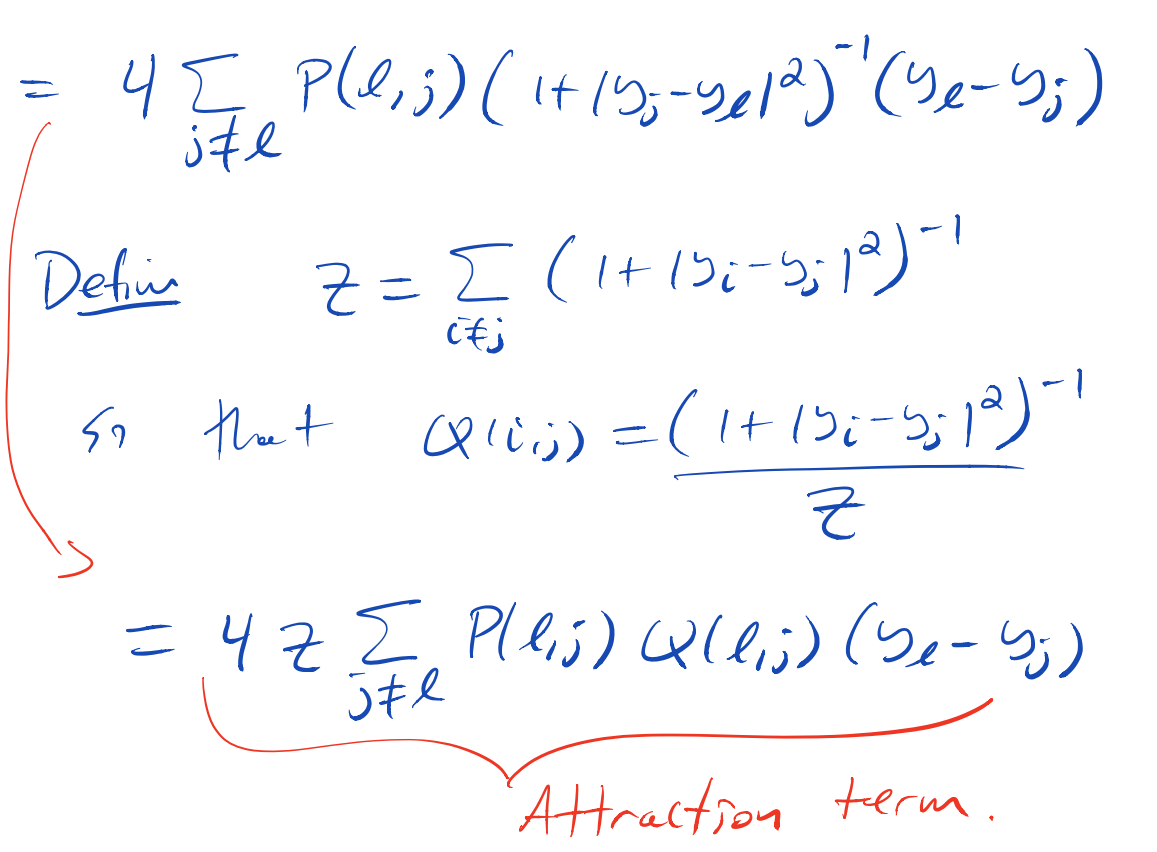 = 4 ∑_{j≠ℓ} P(ℓ,j) (1+|y_j-y_ℓ|²)^{-1} (y_ℓ-y_j)
Define z = ∑_{i≠j} (1+|y_i-y_j|²)^{-1}
so that Q(i,j) = (1+|y_i-y_j|²)^{-1} / z
= 4 z ∑_{j≠ℓ} P(ℓ,j) Q(ℓ,j) (y_ℓ-y_j)
Attraction term.